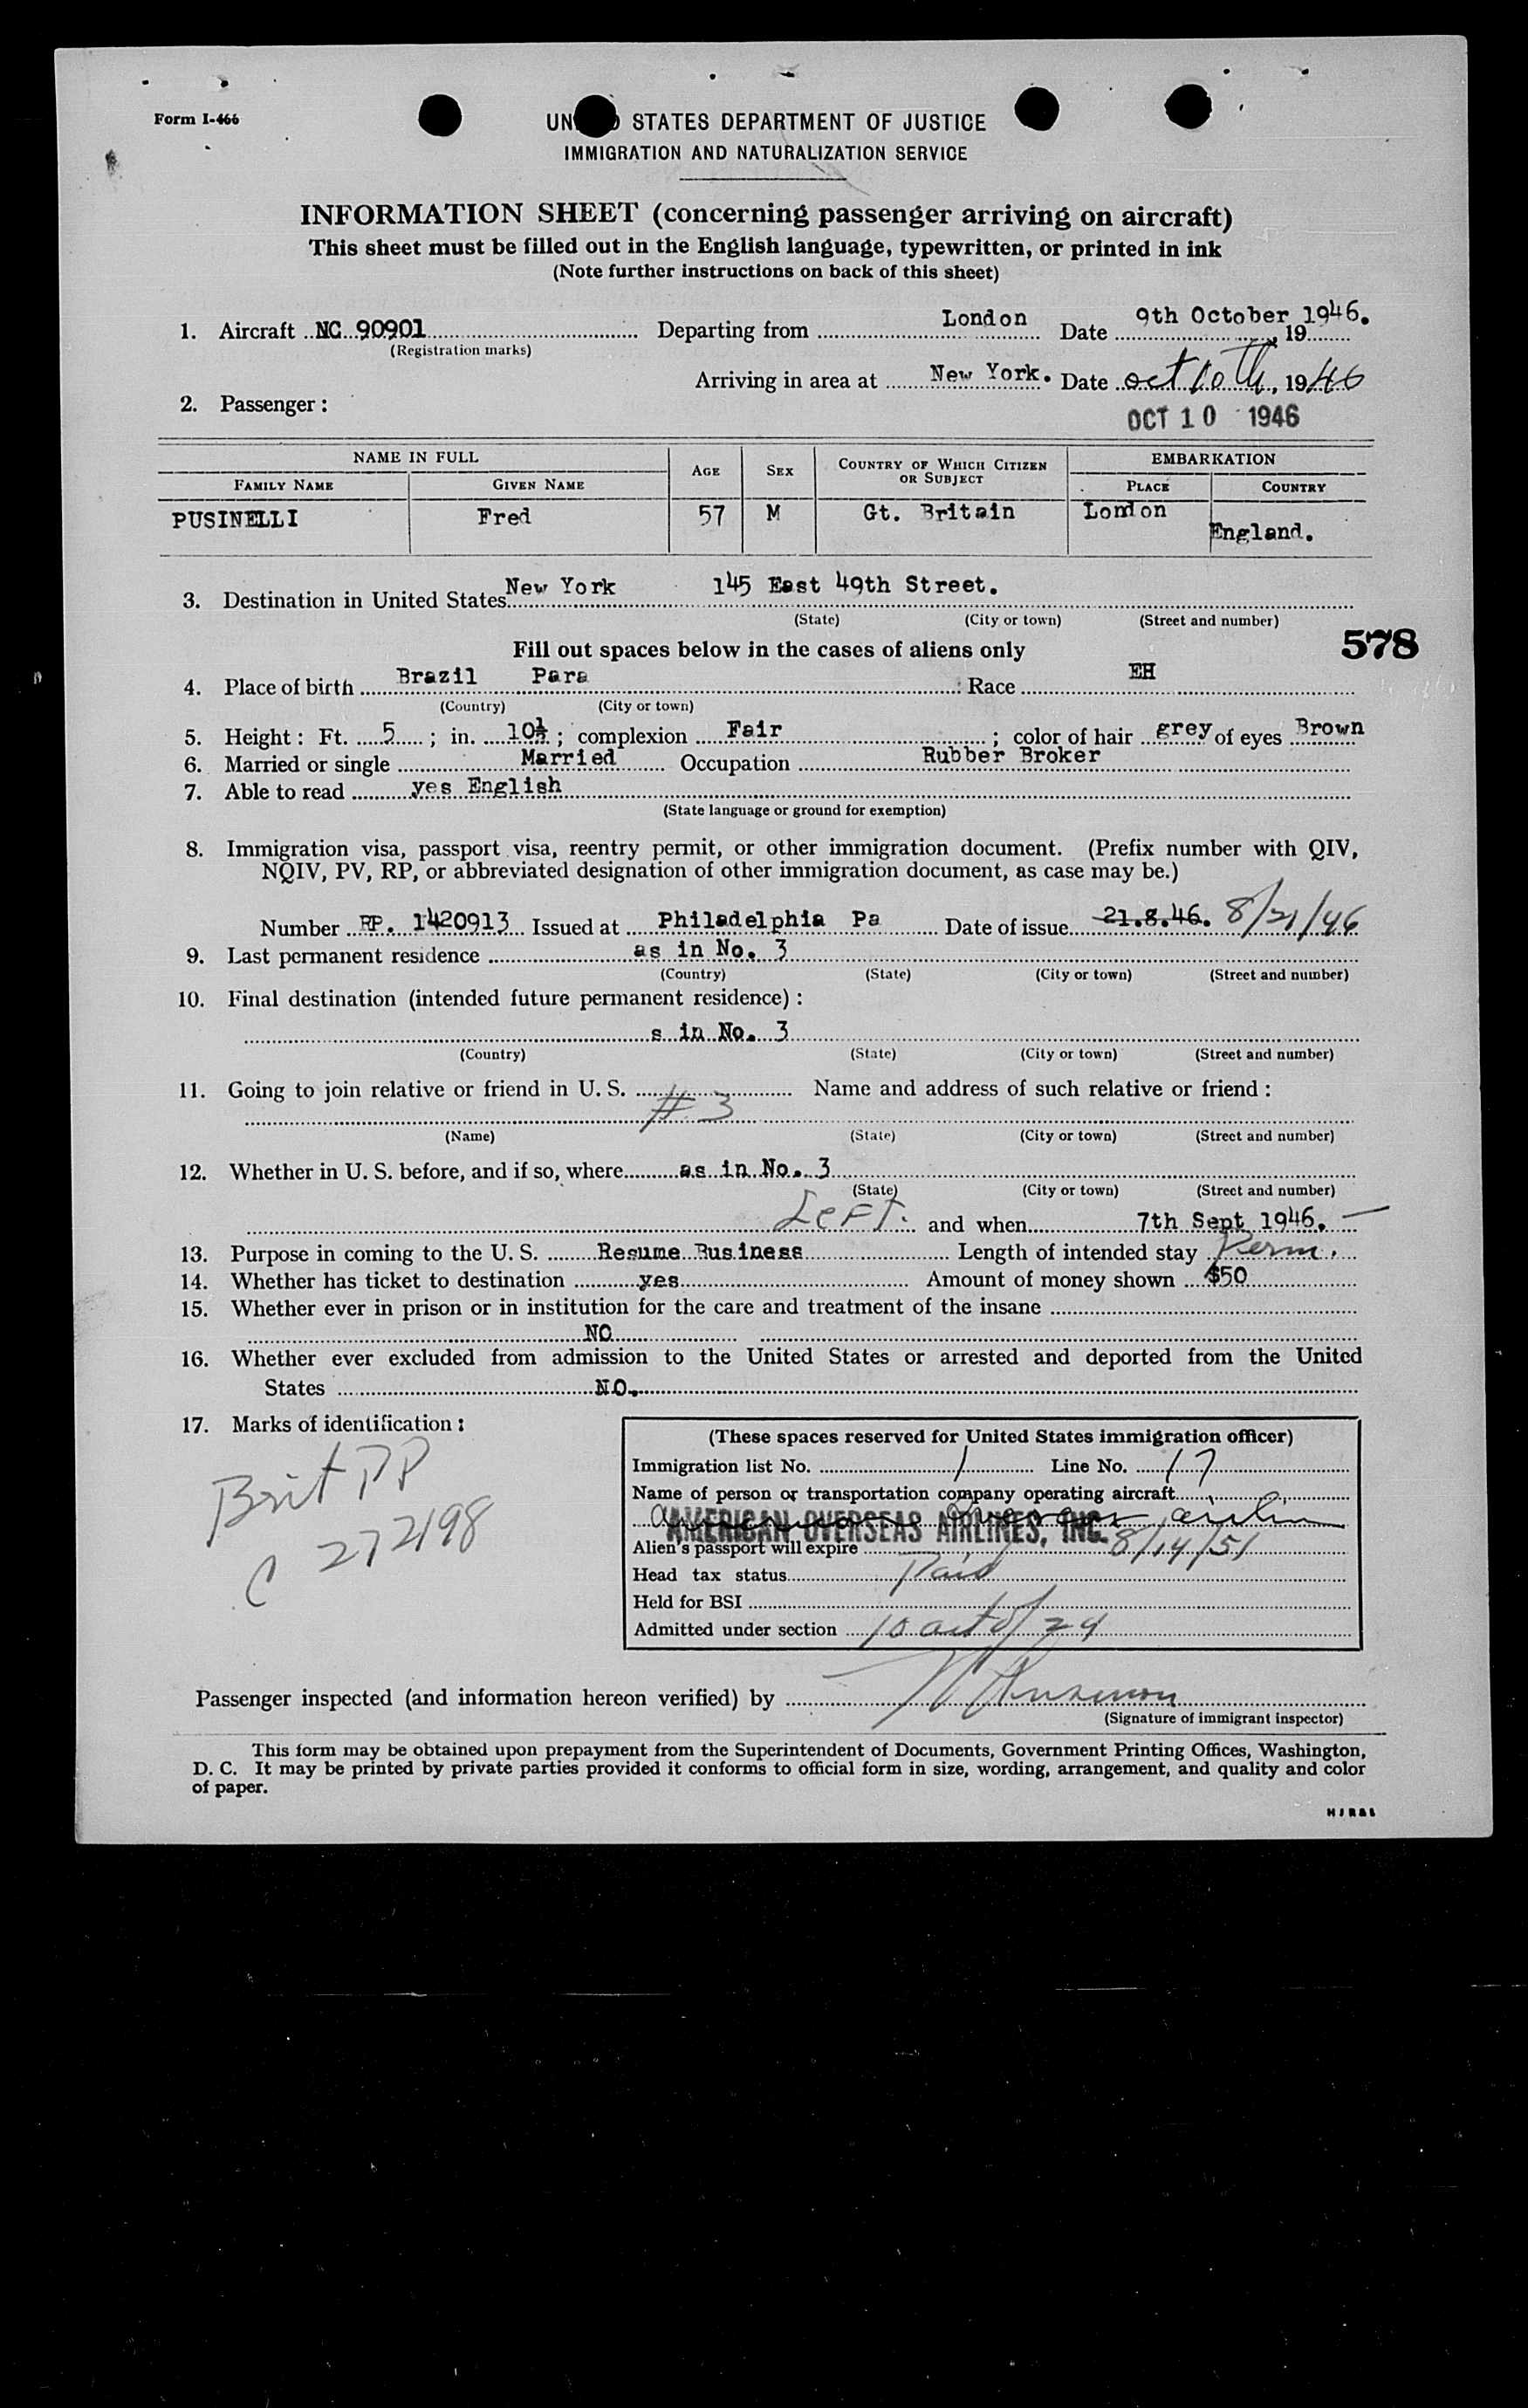 Form I-466
UNITED STATES DEPARTMENT OF JUSTICE
IMMIGRATION AND NATURALIZATION SERVICE
INFORMATION SHEET (concerning passenger arriving on aircraft)
This sheet must be filled out in the English language, typewritten, or printed in ink
(Note further instructions on back of this sheet)
1. Aircraft NC 90901 Departing from London Date 9th October 1946. , 19
(Registration marks)
Arriving in area at New York. Date Oct 10th, 1946
2. Passenger :
OCT 10 1946
NAME IN FULL AGE SEX COUNTRY OF WHICH CITIZEN OR SUBJECT EMBARKATION
FAMILY NAME GIVEN NAME PLACE COUNTRY
PUSINELLI Fred 57 M Gt. Britain London England.
3. Destination in United States New York 145 East 49th Street.
(State) (City or town) (Street and number)
578
Fill out spaces below in the cases of aliens only
4. Place of birth Brazil Para : Race EH
(Country) (City or town)
5. Height : Ft. 5 ; in. 10½ ; complexion Fair ; color of hair grey of eyes Brown
6. Married or single Married Occupation Rubber Broker
7. Able to read yes English
(State language or ground for exemption)
8. Immigration visa, passport visa, reentry permit, or other immigration document. (Prefix number with QIV,
NQIV, PV, RP, or abbreviated designation of other immigration document, as case may be.)
Number RP. 1420913 Issued at Philadelphia Pa Date of issue 21.8.46. 8/21/46
9. Last permanent residence as in No. 3
(Country) (State) (City or town) (Street and number)
10. Final destination (intended future permanent residence) :
s in No. 3
(Country) (State) (City or town) (Street and number)
11. Going to join relative or friend in U. S. Name and address of such relative or friend :
# 3
(Name) (State) (City or town) (Street and number)
12. Whether in U. S. before, and if so, where as in No. 3
(State) (City or town) (Street and number)
Left. and when 7th Sept 1946. —
13. Purpose in coming to the U. S. Resume Business Length of intended stay Perm.
14. Whether has ticket to destination yes Amount of money shown $50
15. Whether ever in prison or in institution for the care and treatment of the insane
NO
16. Whether ever excluded from admission to the United States or arrested and deported from the United
States NO.
17. Marks of identification :
Brit PP
C 272198
(These spaces reserved for United States immigration officer)
Immigration list No. 1 Line No. 17
Name of person or transportation company operating aircraft
American Overseas Airlin
AMERICAN OVERSEAS AIRLINES, INC.
Alien's passport will expire 8/14/51
Head tax status Paid
Held for BSI
Admitted under section 10 act of 24
Passenger inspected (and information hereon verified) by
(Signature of immigrant inspector)
This form may be obtained upon prepayment from the Superintendent of Documents, Government Printing Offices, Washington,
D. C. It may be printed by private parties provided it conforms to official form in size, wording, arrangement, and quality and color
of paper.